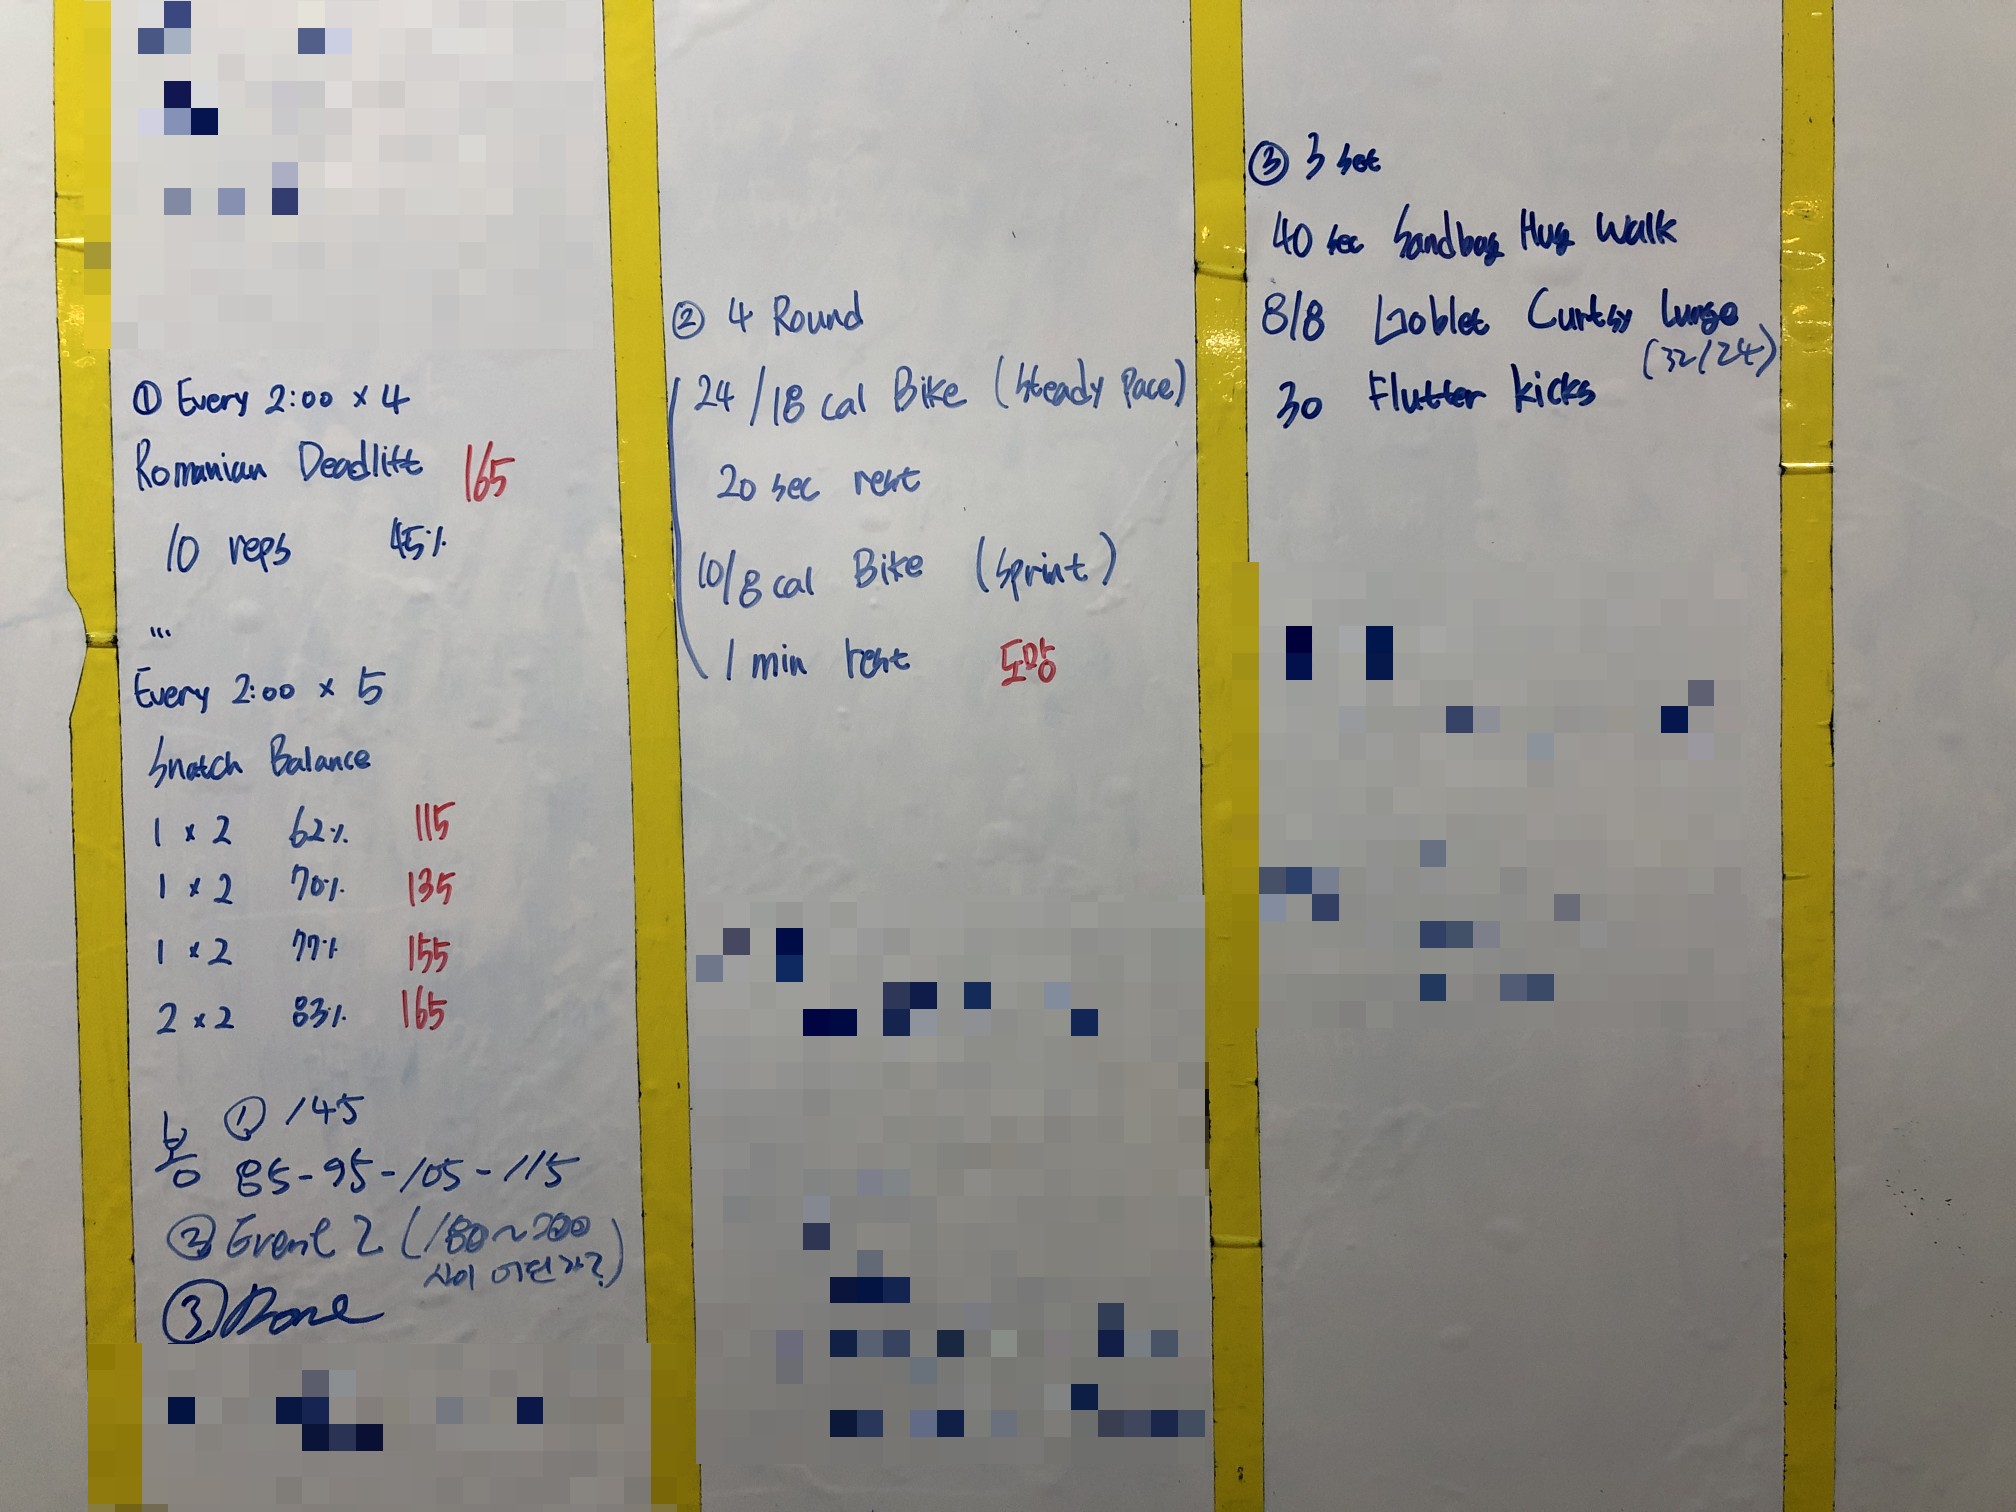 ① Every 2:00 x 4
Romanian Deadlift 165
10 reps 45%
...
Every 2:00 x 5
Snatch Balance
1 x 2 62% 115
1 x 2 70% 135
1 x 2 77% 155
2 x 2 83% 165
봉 ① 145
85-95-105-115
② Event 2 (180~200
사이 어딘가?)
③ Done
② 4 Round
24/18 cal Bike (Steady Pace)
20 sec rest
10/8 cal Bike (Sprint)
1 min rest 도망
③ 3 set
40 sec Sandbag Hug Walk
8/8 Goblet Curtsy Lunge
(32/24)
30 Flutter kicks